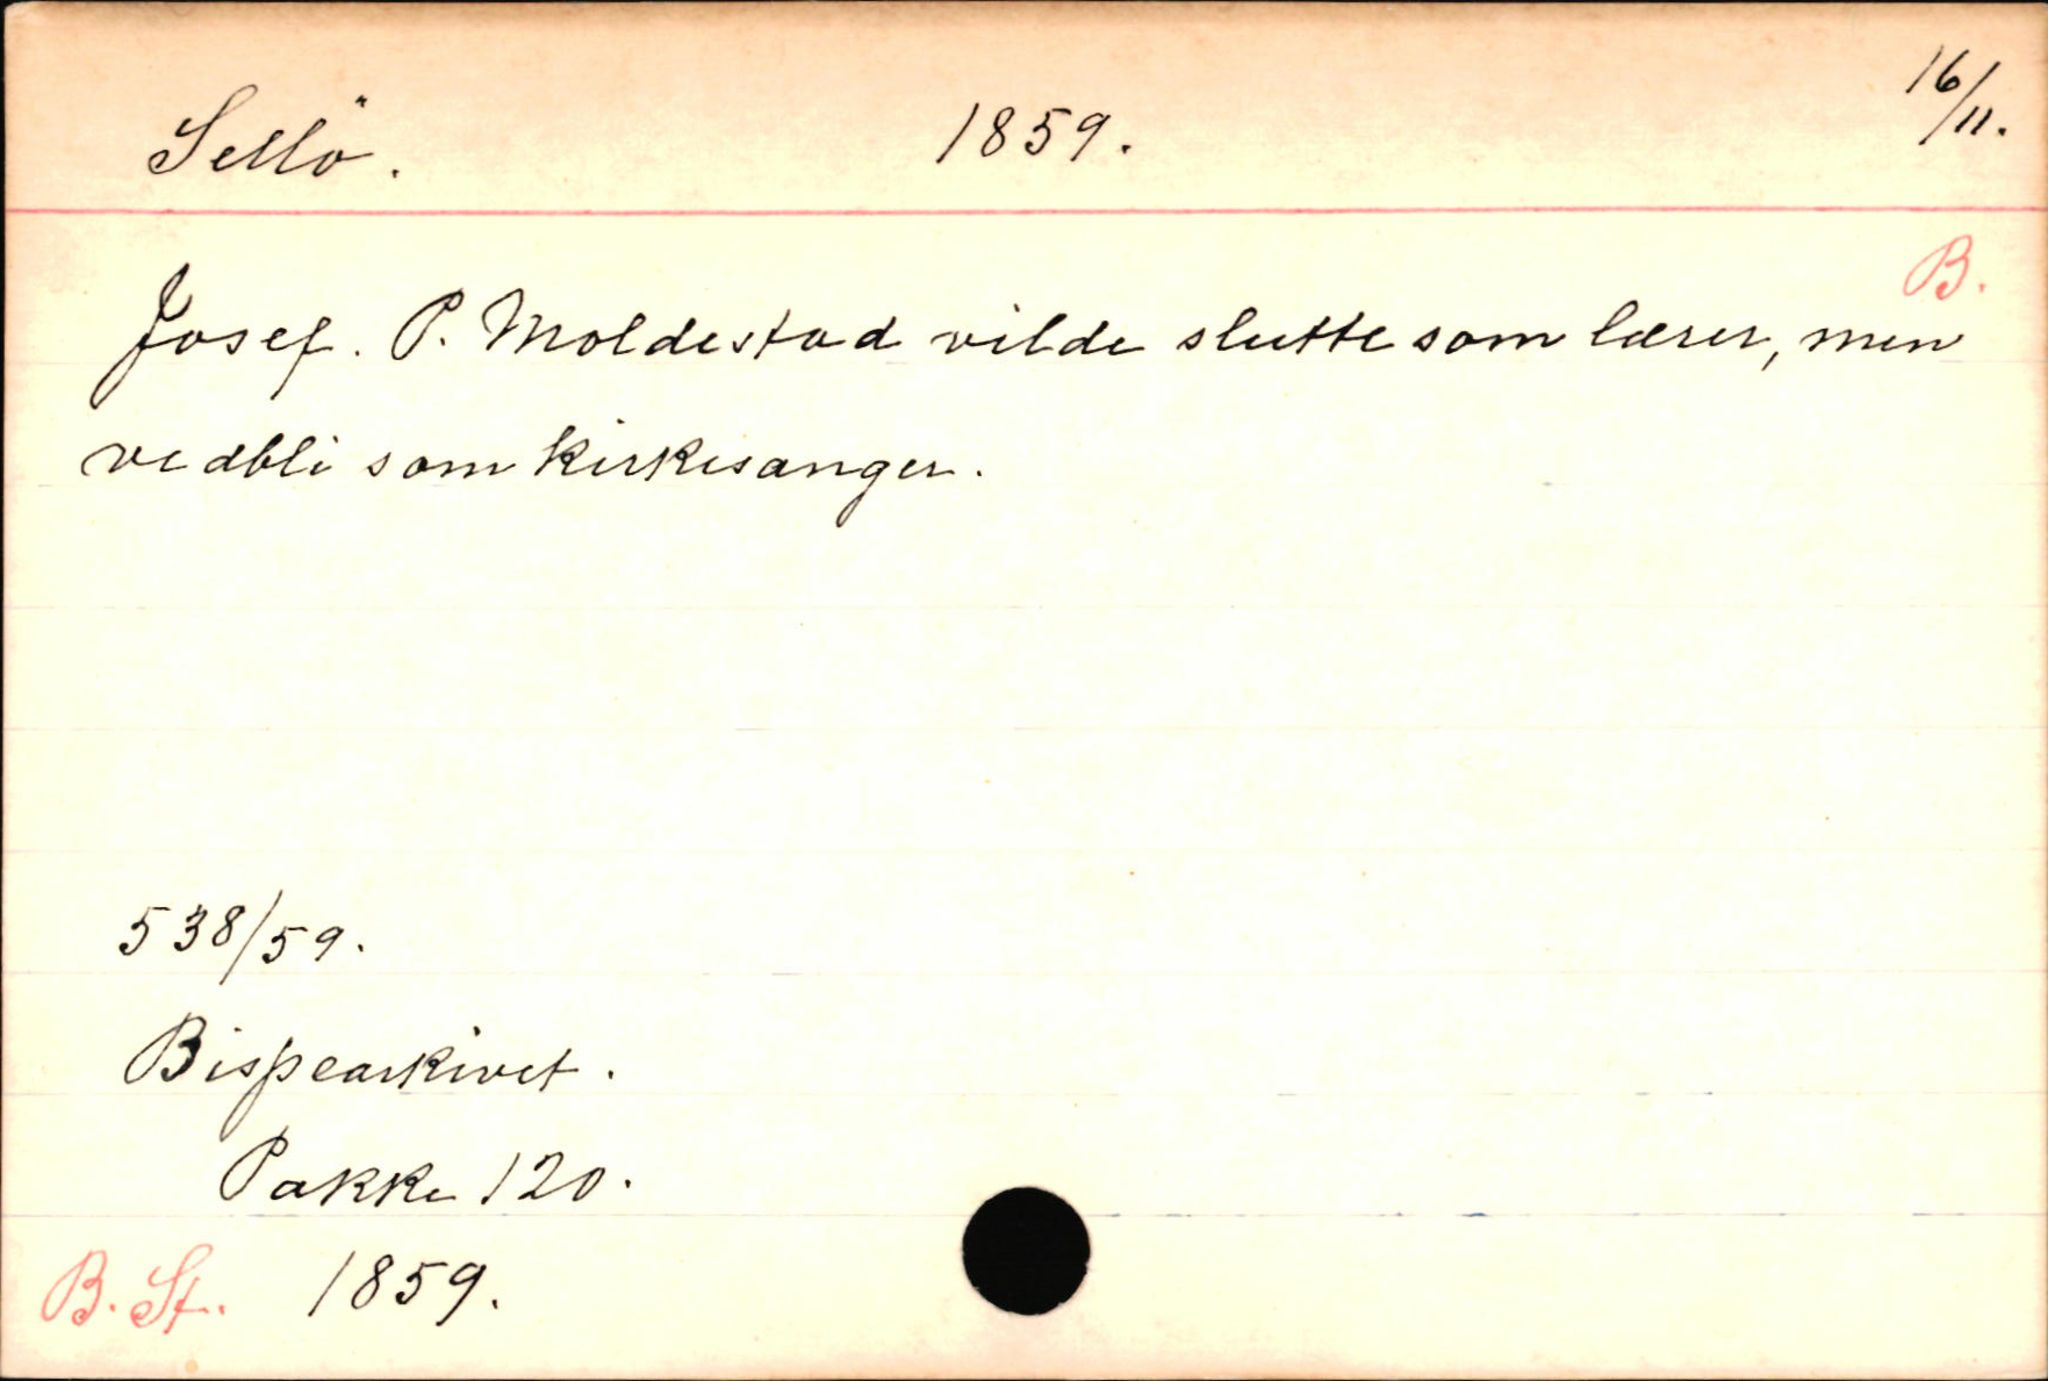 Sellö. 1859. 16/11.
B.
Josef. P. Moldestad vilde slutte som lærer, men
vedbli som kirkesanger.
538/59.
Bispearkivet.
Pakke 120.
B. St. 1859.